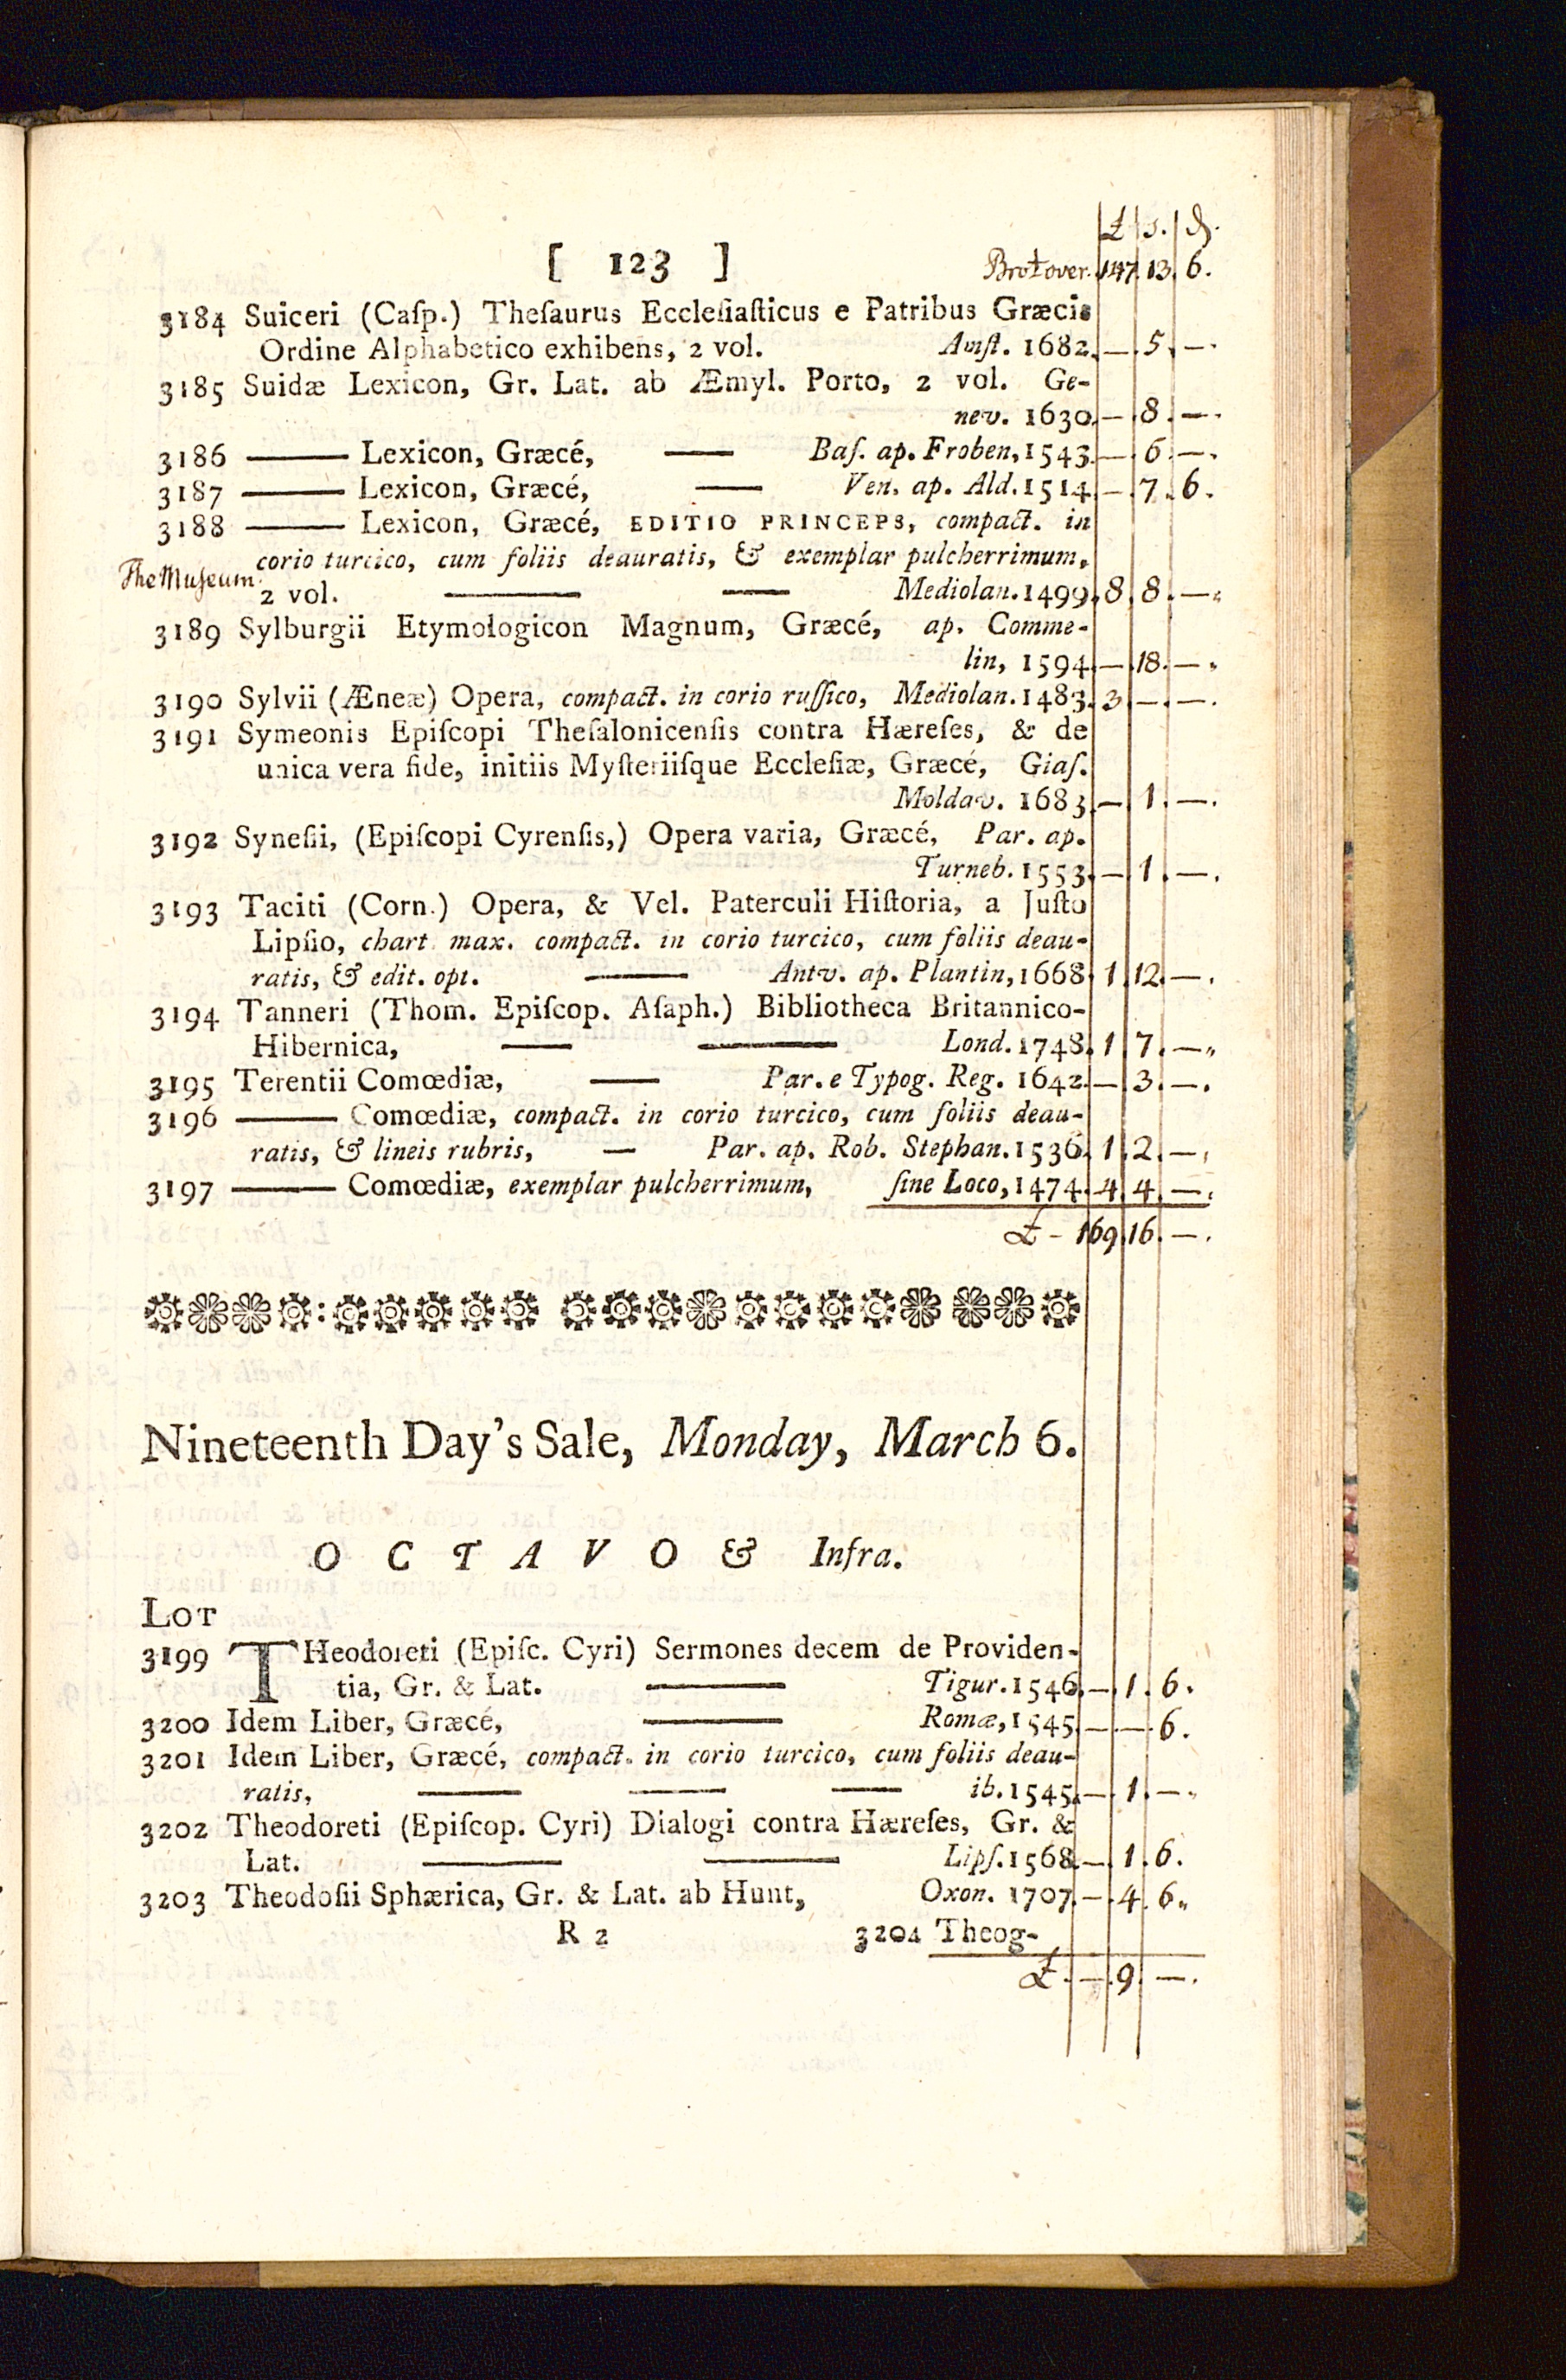 £ s. d.
[ 123 ] Brot over. 147. 13. 6.
3184 Suiceri (Caſp.) Theſaurus Eccleſiaſticus e Patribus Græcis
Ordine Alphabetico exhibens, 2 vol. Amſt. 1682. — . 5 . — .
3185 Suidæ Lexicon, Gr. Lat. ab Æmyl. Porto, 2 vol. Ge-
nev. 1630. — . 8 . — .
3186 ——— Lexicon, Græcé, —— Baſ. ap. Froben, 1543. — . 6 . — .
3187 ——— Lexicon, Græcé, —— Ven. ap. Ald. 1514. — . 7 . 6 .
3188 ——— Lexicon, Græcé, EDITIO PRINCEPS, compact. in
corio turcico, cum foliis deauratis, & exemplar pulcherrimum,
The Museum. 2 vol. ——— —— Mediolan. 1499. 8 . 8 . — .
3189 Sylburgii Etymologicon Magnum, Græcé, ap. Comme-
lin, 1594. — . 18 . — .
3190 Sylvii (Æneæ) Opera, compact. in corio ruſſico, Mediolan. 1483. 3 . — . — .
3191 Symeonis Epiſcopi Theſalonicenſis contra Hæreſes, & de
unica vera fide, initiis Myſteriiſque Eccleſiæ, Græcé, Giaſ.
Moldav. 1683. — . 1 . — .
3192 Syneſii, (Epiſcopi Cyrenſis,) Opera varia, Græcé, Par. ap.
Turneb. 1553. — . 1 . — .
3193 Taciti (Corn.) Opera, & Vel. Paterculi Hiſtoria, a Juſto
Lipſio, chart max. compact. in corio turcico, cum foliis deau-
ratis, & edit. opt. ——— Antv. ap. Plantin, 1668. 1 . 12 . — .
3194 Tanneri (Thom. Epiſcop. Aſaph.) Bibliotheca Britannico-
Hibernica, —— ——— Lond. 1748. 1 . 7 . — .
3195 Terentii Comœdiæ, —— Par. e Typog. Reg. 1642. — . 3 . — .
3196 ——— Comœdiæ, compact. in corio turcico, cum foliis deau-
ratis, & lineis rubris, — Par. ap. Rob. Stephan. 1536. 1 . 2 . — .
3197 ——— Comœdiæ, exemplar pulcherrimum, ſine Loco, 1474. 4 . 4 . — .
£ - 169 . 16 . — .
Nineteenth Day's Sale, Monday, March 6.
OCTAVO & Infra.
LOT
3199 THeodoreti (Epiſc. Cyri) Sermones decem de Providen-
tia, Gr. & Lat. ——— Tigur. 1546. — . 1 . 6 .
3200 Idem Liber, Græcé, ——— Romæ, 1545. — . — . 6 .
3201 Idem Liber, Græcé, compact. in corio turcico, cum foliis deau-
ratis, —— —— —— ib. 1545. — . 1 . — .
3202 Theodoreti (Epiſcop. Cyri) Dialogi contra Hæreſes, Gr. &
Lat. ——— ——— Lipſ. 1568. — . 1 . 6 .
3203 Theodoſii Sphærica, Gr. & Lat. ab Hunt, Oxon. 1707. — . 4 . 6 .
R 2 3204 Theog-
£ . — . 9 . — .